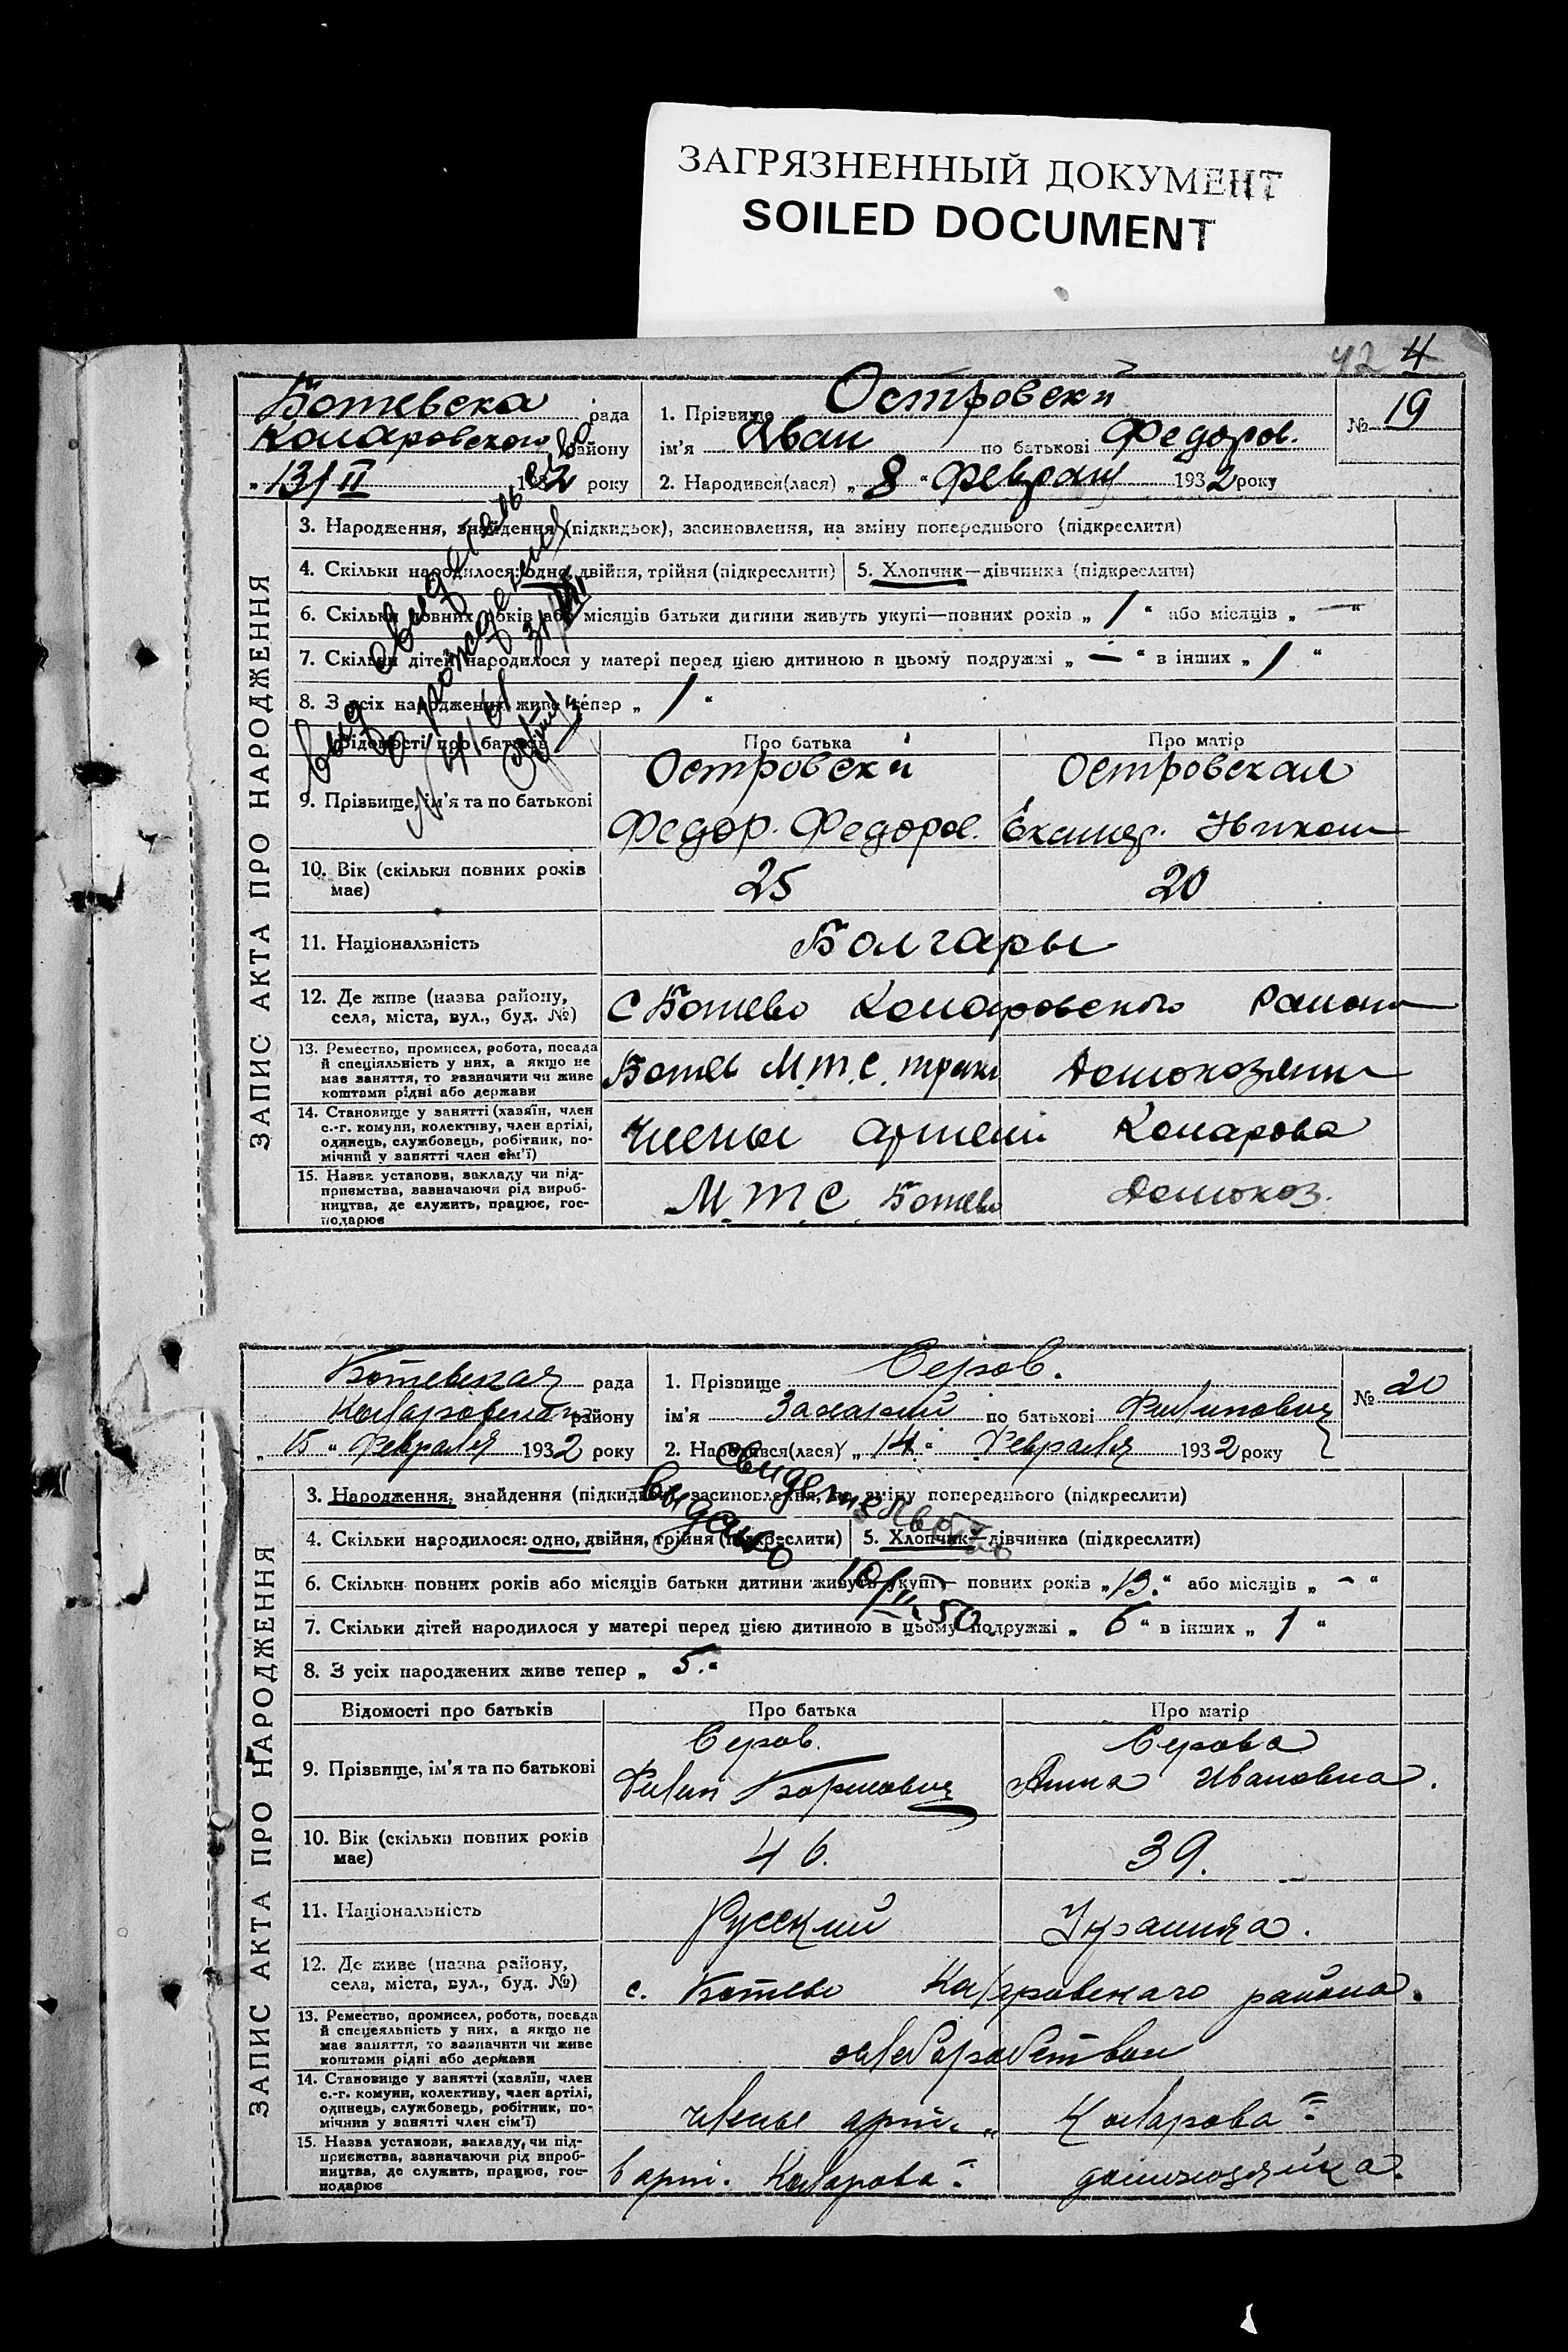 ЗАГРЯЗНЕННЫЙ ДОКУМЕНТ
SOILED DOCUMENT
42 4
Ботевска рада
Коларовского району
"13/II 1932 року
1. Прізвище Островский
ім'я Иван по батькові Федоров.
2. Народився(лася) „ 8 " Февраля 1932 року
№ 19
ЗАПИС АКТА ПРО НАРОДЖЕННЯ
3. Народження, знайдення (підкидьок), засиновлення, на зміну попереднього (підкреслити)
4. Скільки народилося: одно, двійня, трійня (підкреслити) 5. Хлопчик—дівчинка (підкреслити)
6. Скільки повних років або місяців батьки дитини живуть укупі—повних років „ 1 " або місяців „ — "
7. Скільки дітей народилося у матері перед цією дитиною в цьому подружжі „ — " в інших „ 1 "
8. З усіх народжених живе тепер „ 1 "
Выд свидетельство
о рождении
N 4/61 31/VIII
Відомості про батьків Про батька Про матір
9. Прізвище, ім'я та по батькові
Островский Островская
Федор. Федоров.
10. Вік (скільки повних років має) 25 20
11. Національність Болгары
12. Де живе (назва району, села, міста, вул., буд. №) С Ботево Коларовского Района
13. Ремество, промисел, робота, посада й спеціяльність у них, а якщо не має заняття, то зазначити чи живе коштами рідні або держави
Ботев М.Т.С.
14. Становище у занятті (хазяїн, член с.-г. комуни, колективу, член артілі, одинець, службовець, робітник, помічний у занятті член сім'ї)
Члены Артели Коларова
15. Назва установи, закладу чи підприємства, зазначаючи рід виробництва, де служить, працює, господарює
М.Т.С. Ботево Домохоз.
Ботевская рада
Коларовскаго району
„ 15 " Февраля 1932 року
1. Прізвище Серов.
ім'я Захарий по батькові Филипович
2. Народився(лася) „ 14 " Февраля 1932 року
№ 20
ЗАПИС АКТА ПРО НАРОДЖЕННЯ
3. Народження, знайдення (підкидьок), засиновлення, на зміну попереднього (підкреслити)
4. Скільки народилося: одно, двійня, трійня (підкреслити) 5. Хлопчик—дівчинка (підкреслити)
6. Скільки повних років або місяців батьки дитини живуть укупі— повних років „ 13. " або місяців „ - "
7. Скільки дітей народилося у матері перед цією дитиною в цьому подружжі „ 6 " в інших „ 1 "
8. З усіх народжених живе тепер „ 5. "
свидетельство
Выдано
Відомості про батьків Про батька Про матір
9. Прізвище, ім'я та по батькові
Серов. Серова
Филип Борисович Анна Ивановна.
10. Вік (скільки повних років має) 46. 39.
11. Національність Русский Украинка.
12. Де живе (назва району, села, міста, вул., буд. №) с. Ботево Коларовскаго района.
13. Ремество, промисел, робота, посада й спеціяльність у них, а якщо не має заняття, то зазначити чи живе коштами рідні або держави
14. Становище у занятті (хазяїн, член с.-г. комуни, колективу, член артілі, одинець, службовець, робітник, помічний у занятті член сім'ї)
члены арт. „Коларова"
15. Назва установи, закладу, чи підприємства, зазначаючи рід виробництва, де служить, працює, господарює
в арт. Коларова" домохозяйка.